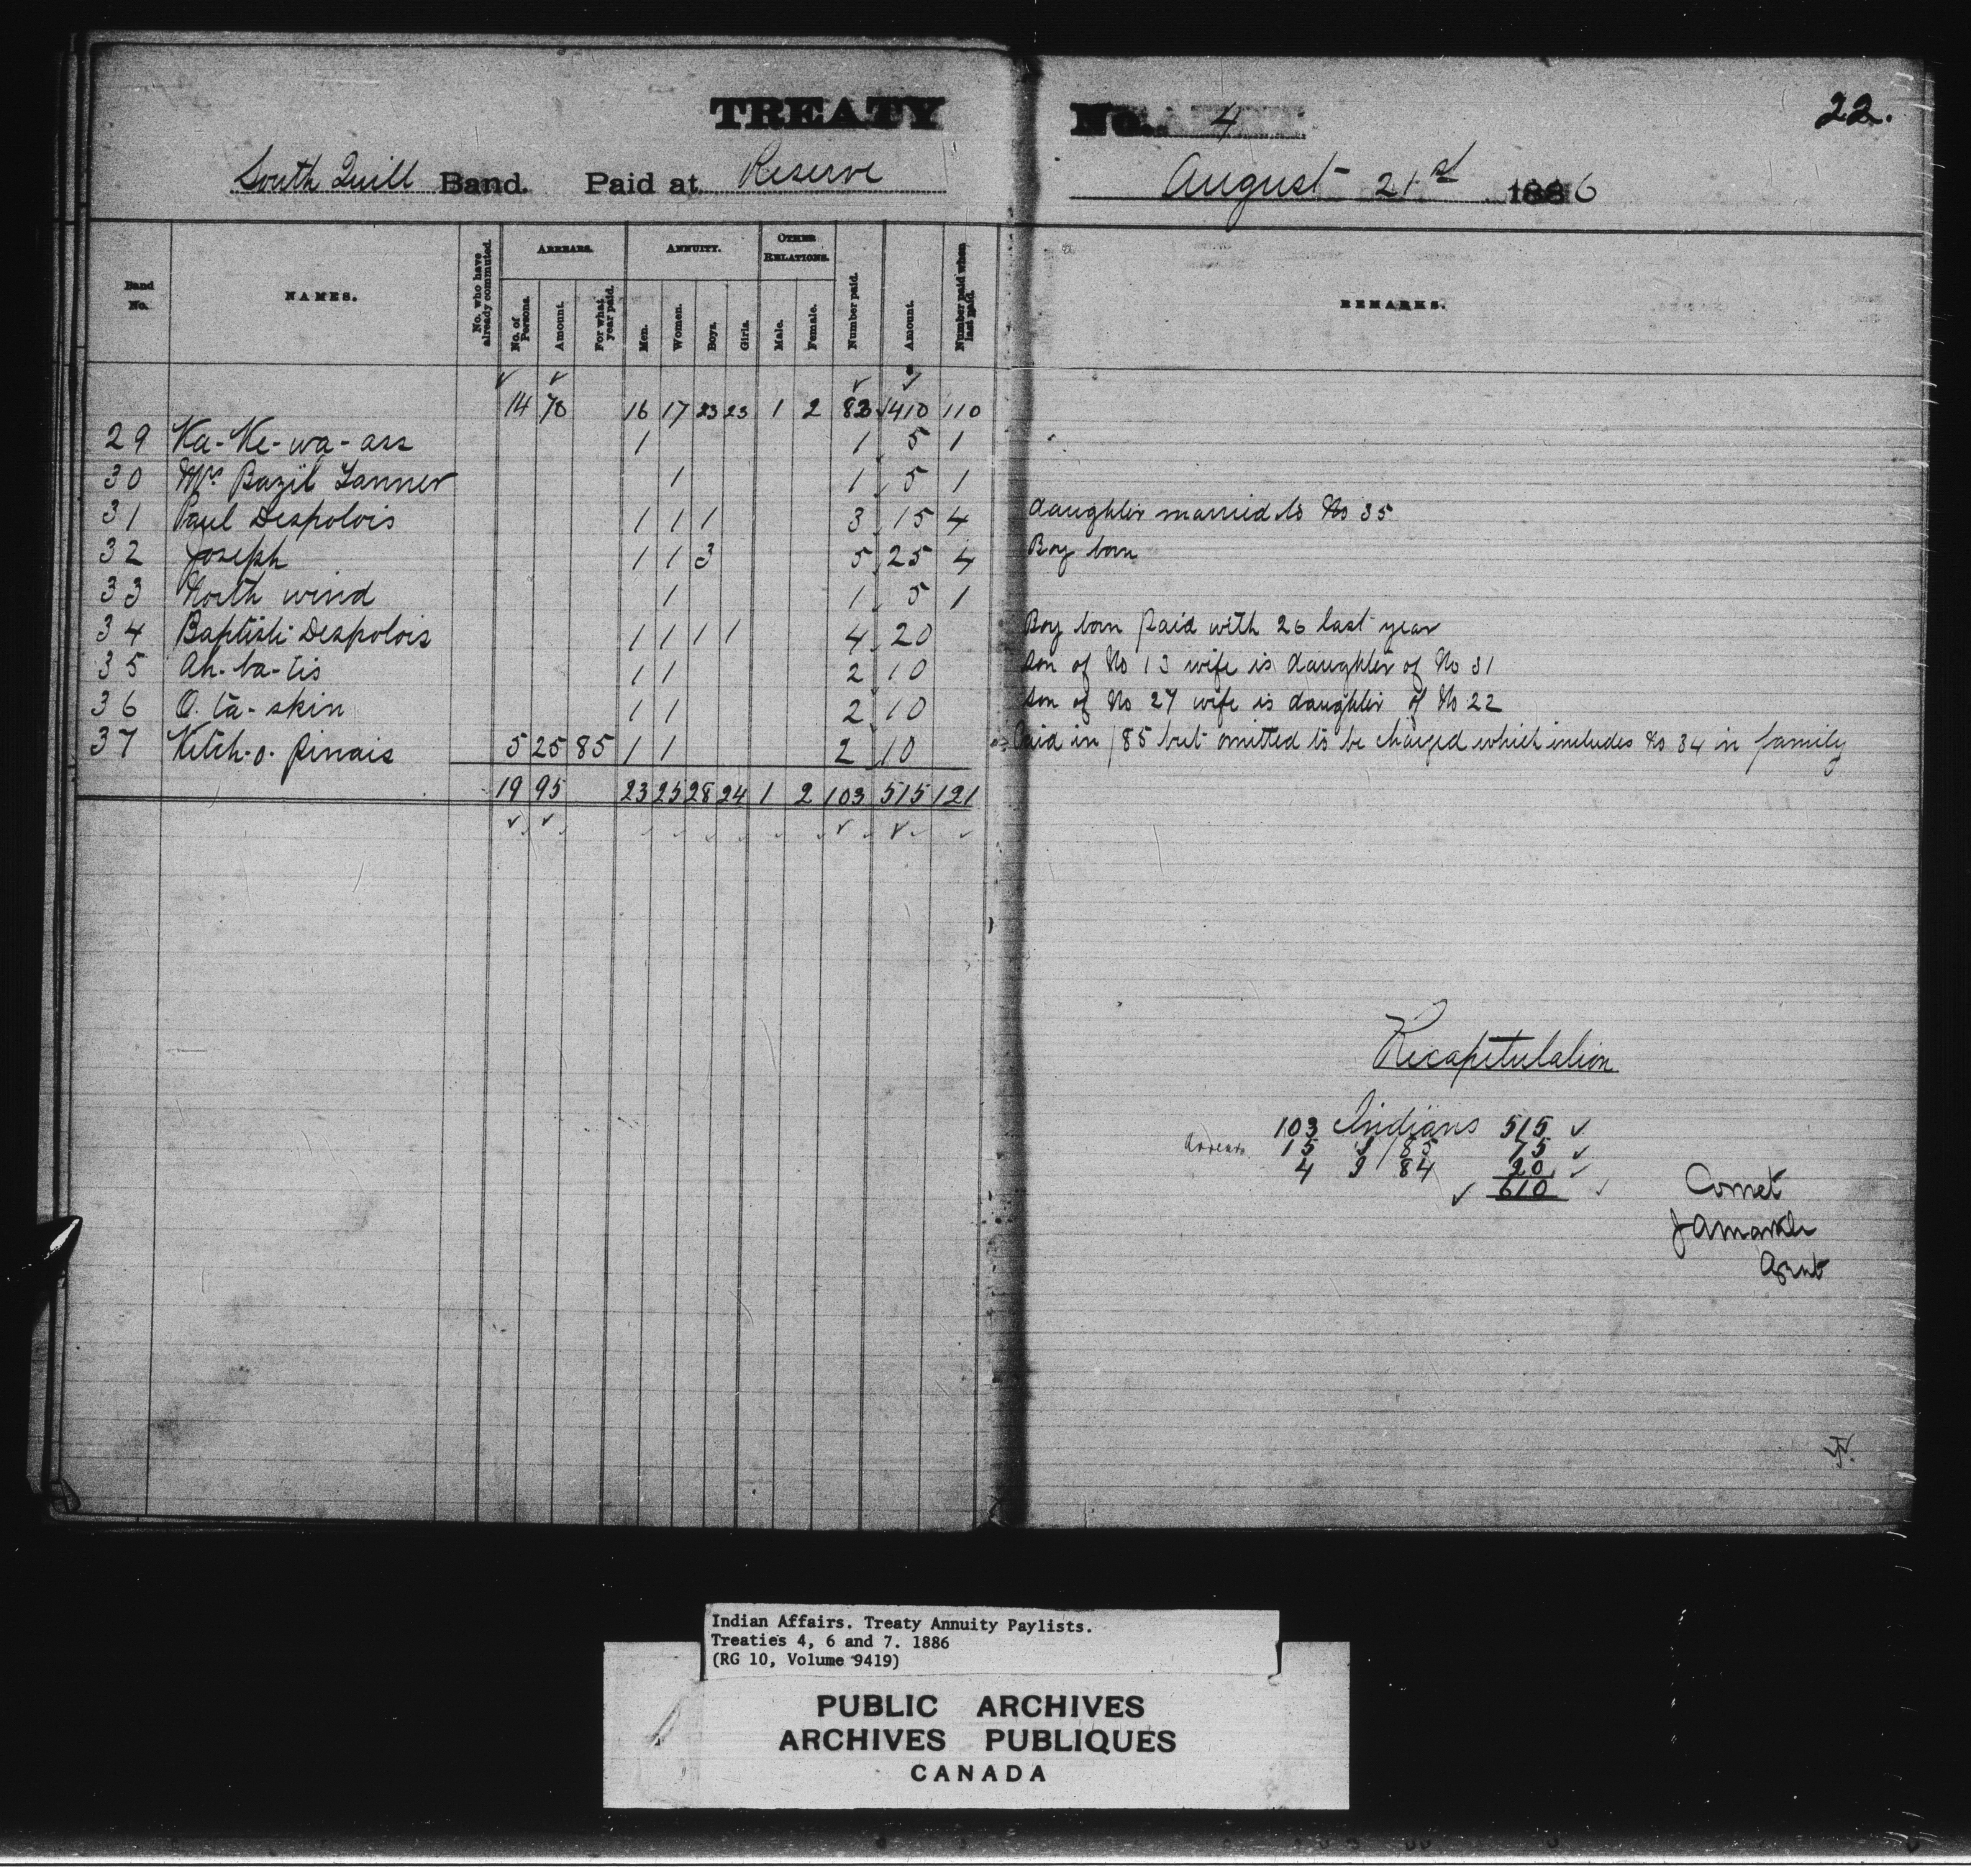 TREATY No. 4
22.
South Quill Band. Paid at Reserve August 21st 1886
Band No. NAMES. No. who have already commuted. ARREARS. No. of Persons. Amount. For what year paid. ANNUITY. Men. Women. Boys. Girls. OTHER RELATIONS. Male. Female. Number paid. Amount. Number paid when last paid. REMARKS.
14 70 16 17 23 23 1 2 82 410 110
29 Ka-Ke-wa-ass 1 1 5 1
30 Mrs Bazil Tanner 1 1 5 1
31 Paul Despolois 1 1 1 3 15 4 daughter married to No 35
32 Joseph 1 1 3 5 25 4 Boy born
33 North wind 1 1 5 1
34 Baptiste Despolois 1 1 1 1 4 20 Boy born paid with 26 last year
35 Ah-ba-tis 1 1 2 10 son of No 13 wife is daughter of No 31
36 O-ta-skin 1 1 2 10 son of No 27 wife is daughter of No 22
37 Kitch-o-pinais 5 25 85 1 1 2 10 Paid in /85 but omitted to be charged which includes No 34 in family
19 95 23 25 28 24 1 2 103 515 121
Recapitulation
103 Indians 515
Arrears 15 " /85 75
4 " 84 20
610
Correct
J A Markle
Agent
Indian Affairs. Treaty Annuity Paylists.
Treaties 4, 6 and 7. 1886
(RG 10, Volume 9419)
PUBLIC ARCHIVES
ARCHIVES PUBLIQUES
CANADA